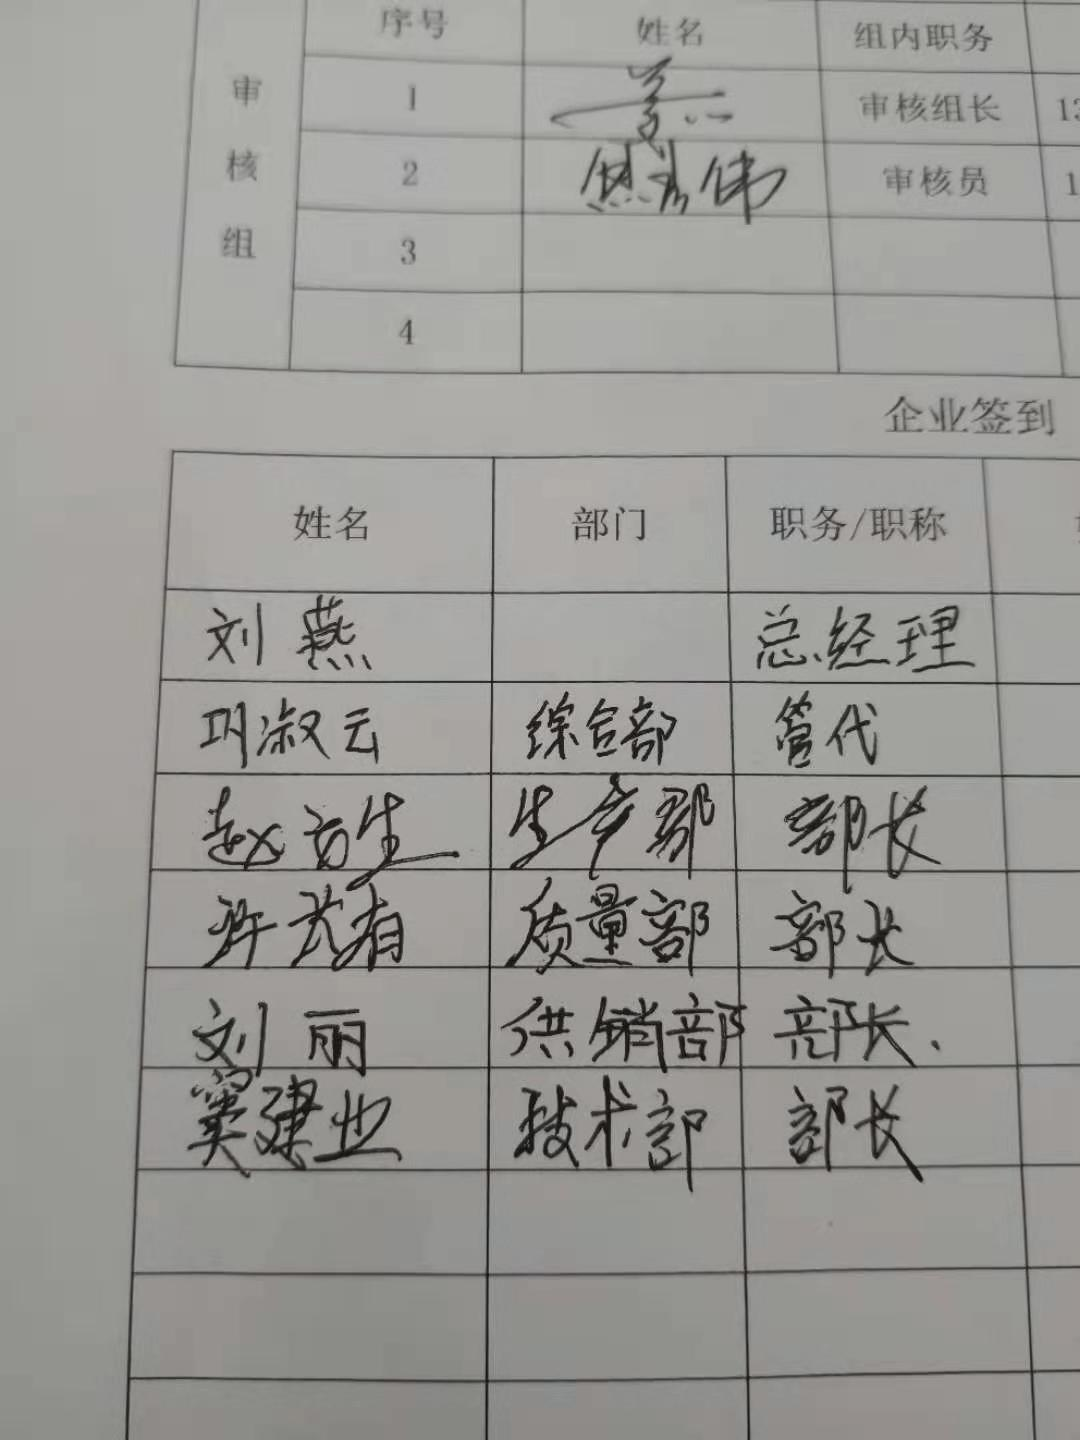 审核组
序号 姓名 组内职务
1 审核组长 13
2 伟 审核员 1
3
4
企业签到
姓名 部门 职务/职称
刘燕 总经理
巩淑云 综合部 管代
赵 生 生产部 部长
许武有 质量部 部长
刘丽 供销部 部长.
窦建业 技术部 部长